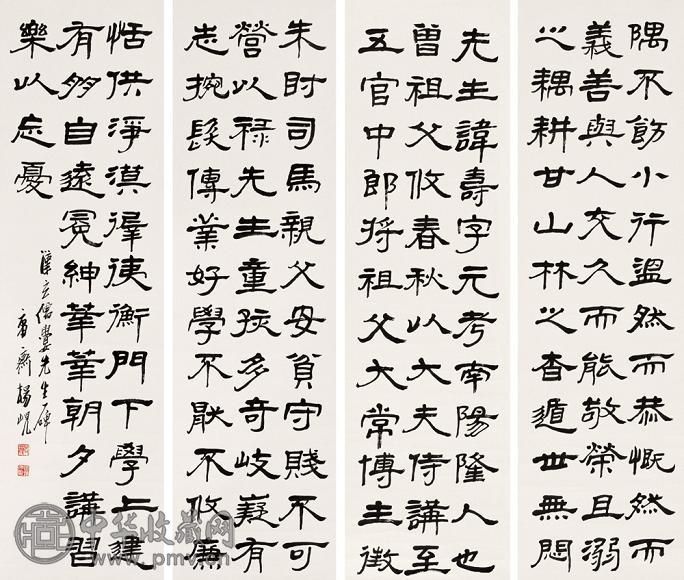 隅不飭小行溫然而恭慨然而
義善與人交久而能敬榮且溺
之耦耕甘山林之杳遁世無悶
先生諱壽字元考南陽隆人也
曾祖父攸春秋以大夫侍講至
五官中郎將祖父大常博主徵
朱財司馬親父安貧守賤不可
營以祿先生童孩多奇岐嶷有
志捥髮傳業好學不厭不攸廉
恬佚淨漠徲徥衡門下學上達
有朋自遠冕紳莘莘朝夕講習
樂以忘憂
漢玄儒婁先生碑
庸齋楊峴
中华收藏网
www.pmv.cn